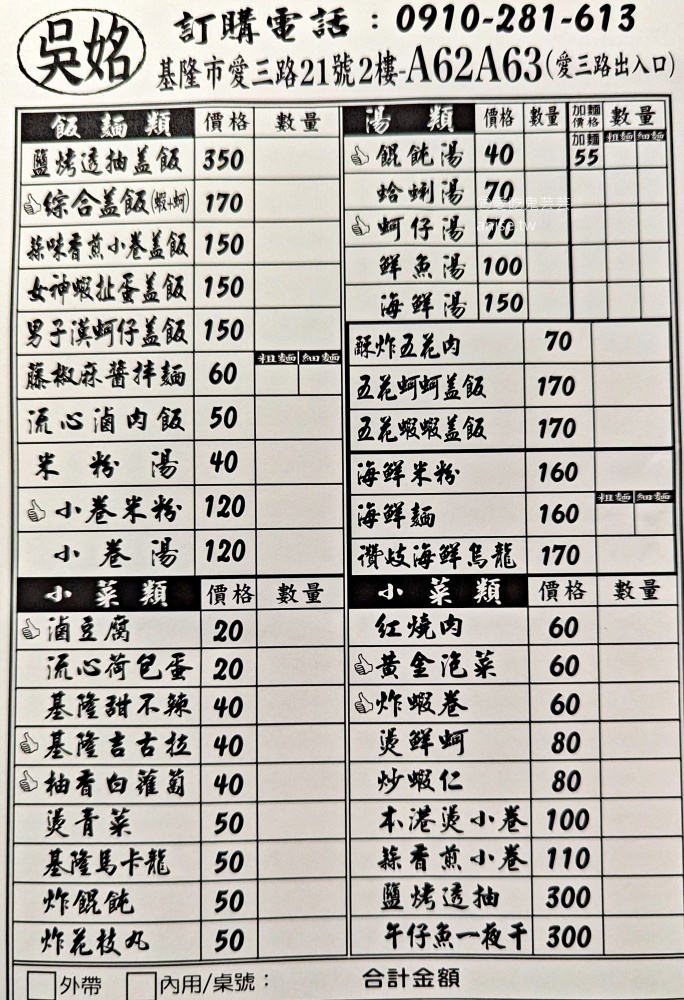 吳姳
訂購電話：0910-281-613
基隆市愛三路21號2樓-A62A63(愛三路出入口)
飯麵類 價格 數量
鹽烤透抽蓋飯 350
綜合蓋飯(蝦+蚵) 170
蒜味香煎小卷蓋飯 150
女神蝦扯蛋蓋飯 150
男子漢蚵仔蓋飯 150
粗麵 細麵
藤椒麻醬拌麵 60
流心滷肉飯 50
米粉湯 40
小卷米粉 120
小卷湯 120
湯類 價格 數量 加麵價格 數量
餛飩湯 40 加麵 55 粗麵 細麵
蛤蜊湯 70
蚵仔湯 70
鮮魚湯 100
海鮮湯 150
酥炸五花肉 70
五花蚵蚵蓋飯 170
五花蝦蝦蓋飯 170
海鮮米粉 160
粗麵 細麵
海鮮麵 160
讚岐海鮮烏龍 170
小菜類 價格 數量
滷豆腐 20
流心荷包蛋 20
基隆甜不辣 40
基隆吉古拉 40
柚香白蘿蔔 40
燙青菜 50
基隆馬卡龍 50
炸餛飩 50
炸花枝丸 50
小菜類 價格 數量
紅燒肉 60
黃金泡菜 60
炸蝦卷 60
燙鮮蚵 80
炒蝦仁 80
本港燙小卷 100
蒜香煎小卷 110
鹽烤透抽 300
午仔魚一夜干 300
外帶 內用/桌號： 合計金額